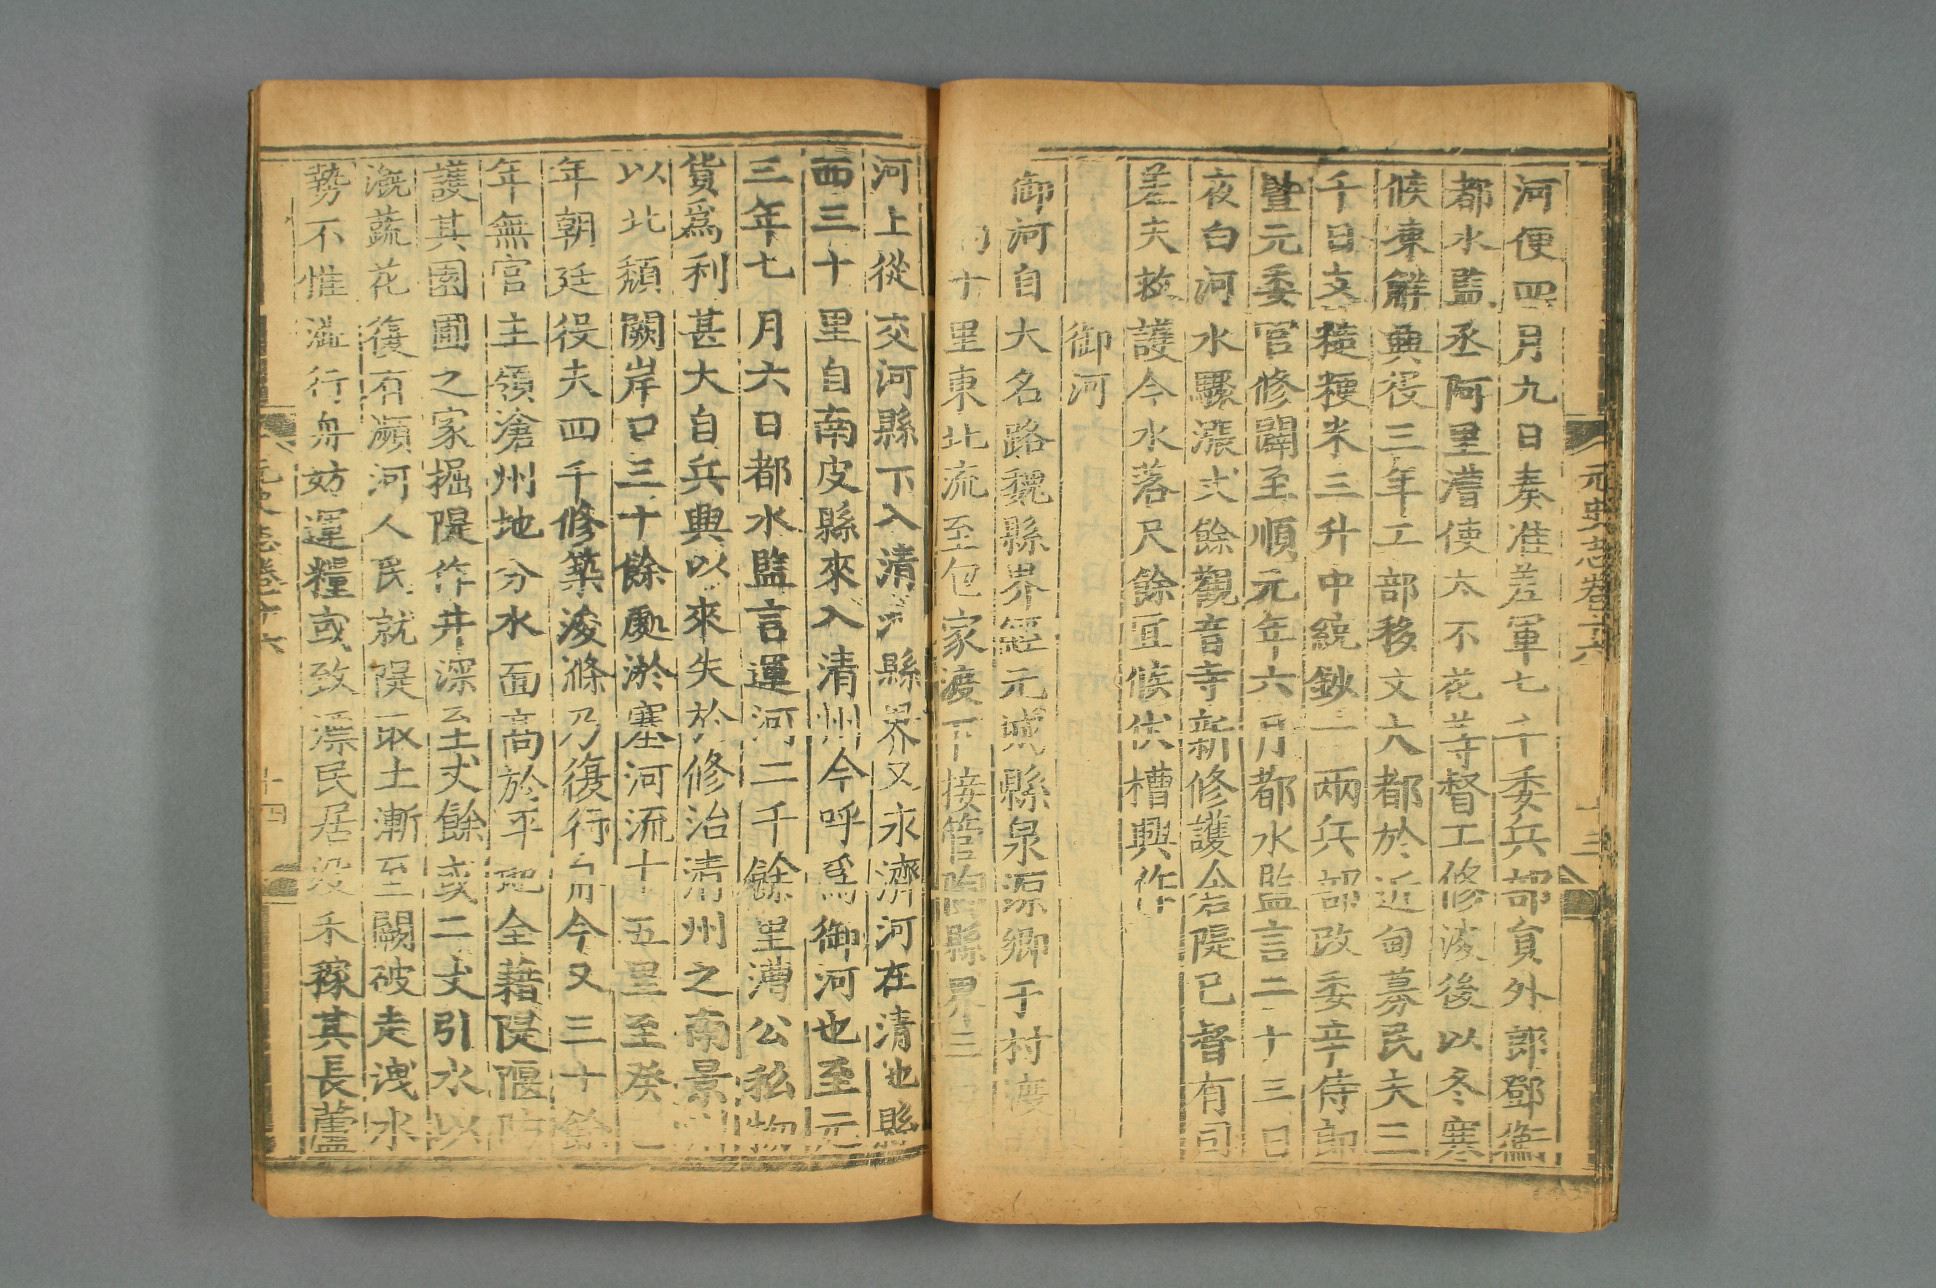 元史志卷十六
十三
河便四月九日奏准差軍七千委兵部員外郎鄧衡
都水監丞阿里漕使太不花等督工修浚後以冬寒
候凍解興役三年工部移文大都於近甸募民夫三
千日支糙粳米三升中統鈔一兩兵部改委辛侍郎
暨元委官修闢至順元年六月都水監言二十三日
夜白河水驟漲丈餘觀音寺新修護倉隄已督有司
差夫救護今水落尺餘宜候伏槽興作
御河
御河自大名路魏縣界經元城縣泉源鄉于村渡
十里東北流至包家渡下接管陶縣界三
河上從交河縣下入清池縣界又永濟河在清池縣
西三十里自南皮縣來入清州今呼爲御河也至元
三年七月六日都水監言運河二千餘里漕公私物
貨爲利甚大自兵興以來失於修治清州之南景州
以北頹闕岸口三十餘處淤塞河流十五里至癸
年朝廷役夫四千修築浚滌乃復行舟今又三十餘
年無官主領滄州地分水面高於平地全藉隄堰防
護其園圃之家掘隄作井深至丈餘或二丈引水以
漑蔬花復有瀕河人民就隄取土漸至闕破走洩水
勢不惟澁行舟妨運糧或致漂民居没禾稼其長蘆
元史志卷十六
十四